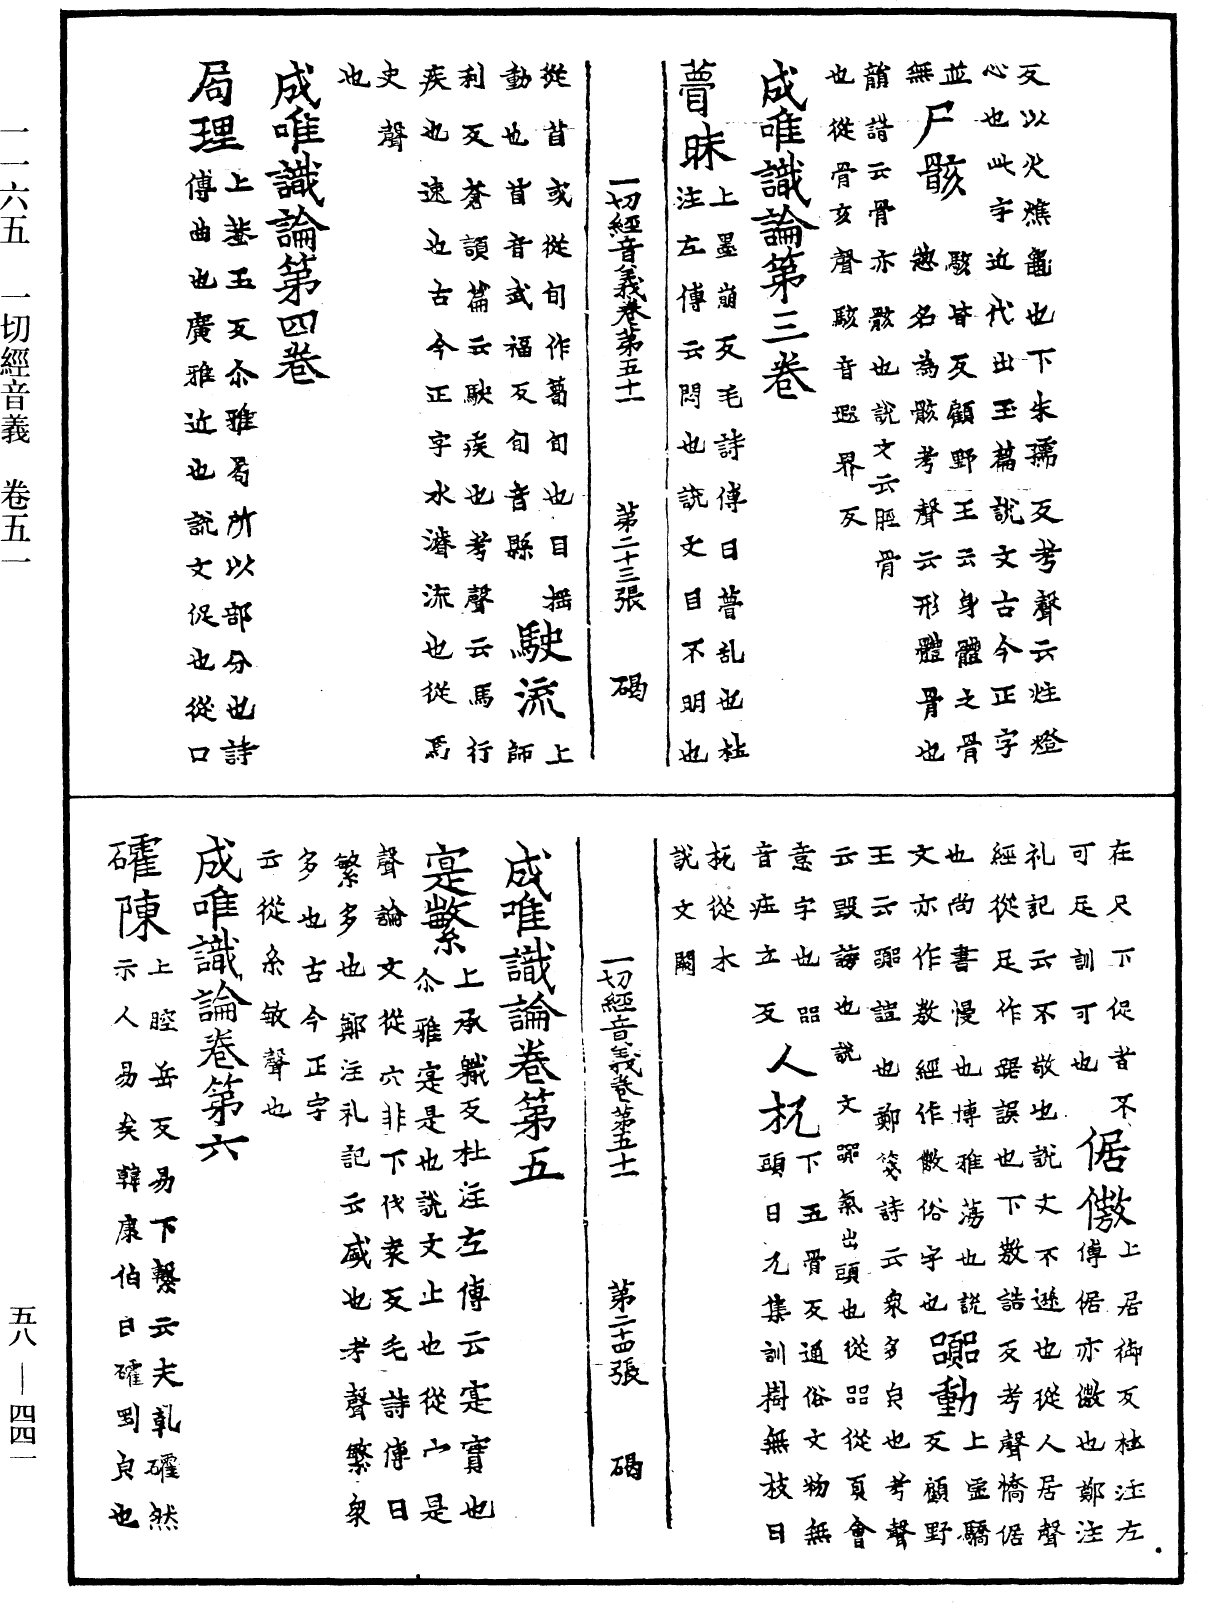 反以火燋龜也下朱孺反考聲云炷燈
心也此字近代出玉篇說文古今正字
並無
尸骸
駭皆反顧野王云身體之骨
惣名為骸考聲云形體骨也
韻譜云骨亦骸也說文云脛骨
也從骨亥聲駭音遐界反
成唯識論第三卷
瞢昧
上墨崩反毛詩傳曰瞢乱也杜
注左傳云悶也說文目不明也
一切經音義卷第五十一　第二十三張　碣
從苜或從旬作瞢旬也目搖
動也苜音武福反旬音縣
駛流
上師
利反蒼頡篇云駛疾也考聲云馬行
疾也速也古今正字水濬流也從馬
史聲
也
成唯識論第四卷
局理
上蛬玉反尒雅局所以部分也詩
傳曲也廣雅近也說文促也從口
在尺下促者不
可足訓可也
倨傲
上居御反杜注左
傳倨亦傲也鄭注
礼記云不敬也說文不遜也從人居聲
經從足作踞誤也下敖誥反考聲憍倨
也尚書慢也博雅蕩也說
文亦作敖經作傲俗字也
嚻動
上虛驕
反顧野
王云嚻諠也鄭箋詩云衆多皃也考聲
云毀謗也說文嚻氣出頭也從㗊從頁會
意字也㗊
音壯立反
人杌
下五骨反通俗文物無
頭曰兀集訓樹無枝曰
杌從木
說文闕
一切經音義卷第五十一　第二十四張　碣
成唯識論卷第五
寔繁
上承軄反杜注左傳云寔實也
尒雅寔是也說文止也從宀是
聲論文從穴非下伐袁反毛詩傳曰
繁多也鄭注礼記云咸也考聲繁衆
多也古今正字
云從糸敏聲也
成唯識論卷第六
礭陳
上腔岳反易下繫云夫乹礭然
示人易矣韓康伯曰礭剛貞也
一一六五　一切經音義　卷五一
五八—四四一